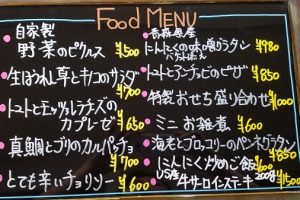 Food MENU
自家製
野菜のピクルス ¥500
生ほうれん草とキノコのサラダ
¥700
トマトとモッツァレラチーズの
カプレーゼ ¥650
真鯛とブリのカルパッチョ
¥700
とても辛いチョリソー ¥600
青森県産
にんにくの味噌グラタン
バゲット ¥980
トマトとアンチョビのピザ
¥850
特製おせち盛り合わせ
¥1000
ミニお雑煮 ¥600
海老とブロッコリーのペンネグラタン
¥850
にんにく炒めご飯 ¥600
US産
牛サーロインステーキ 200g
¥1500